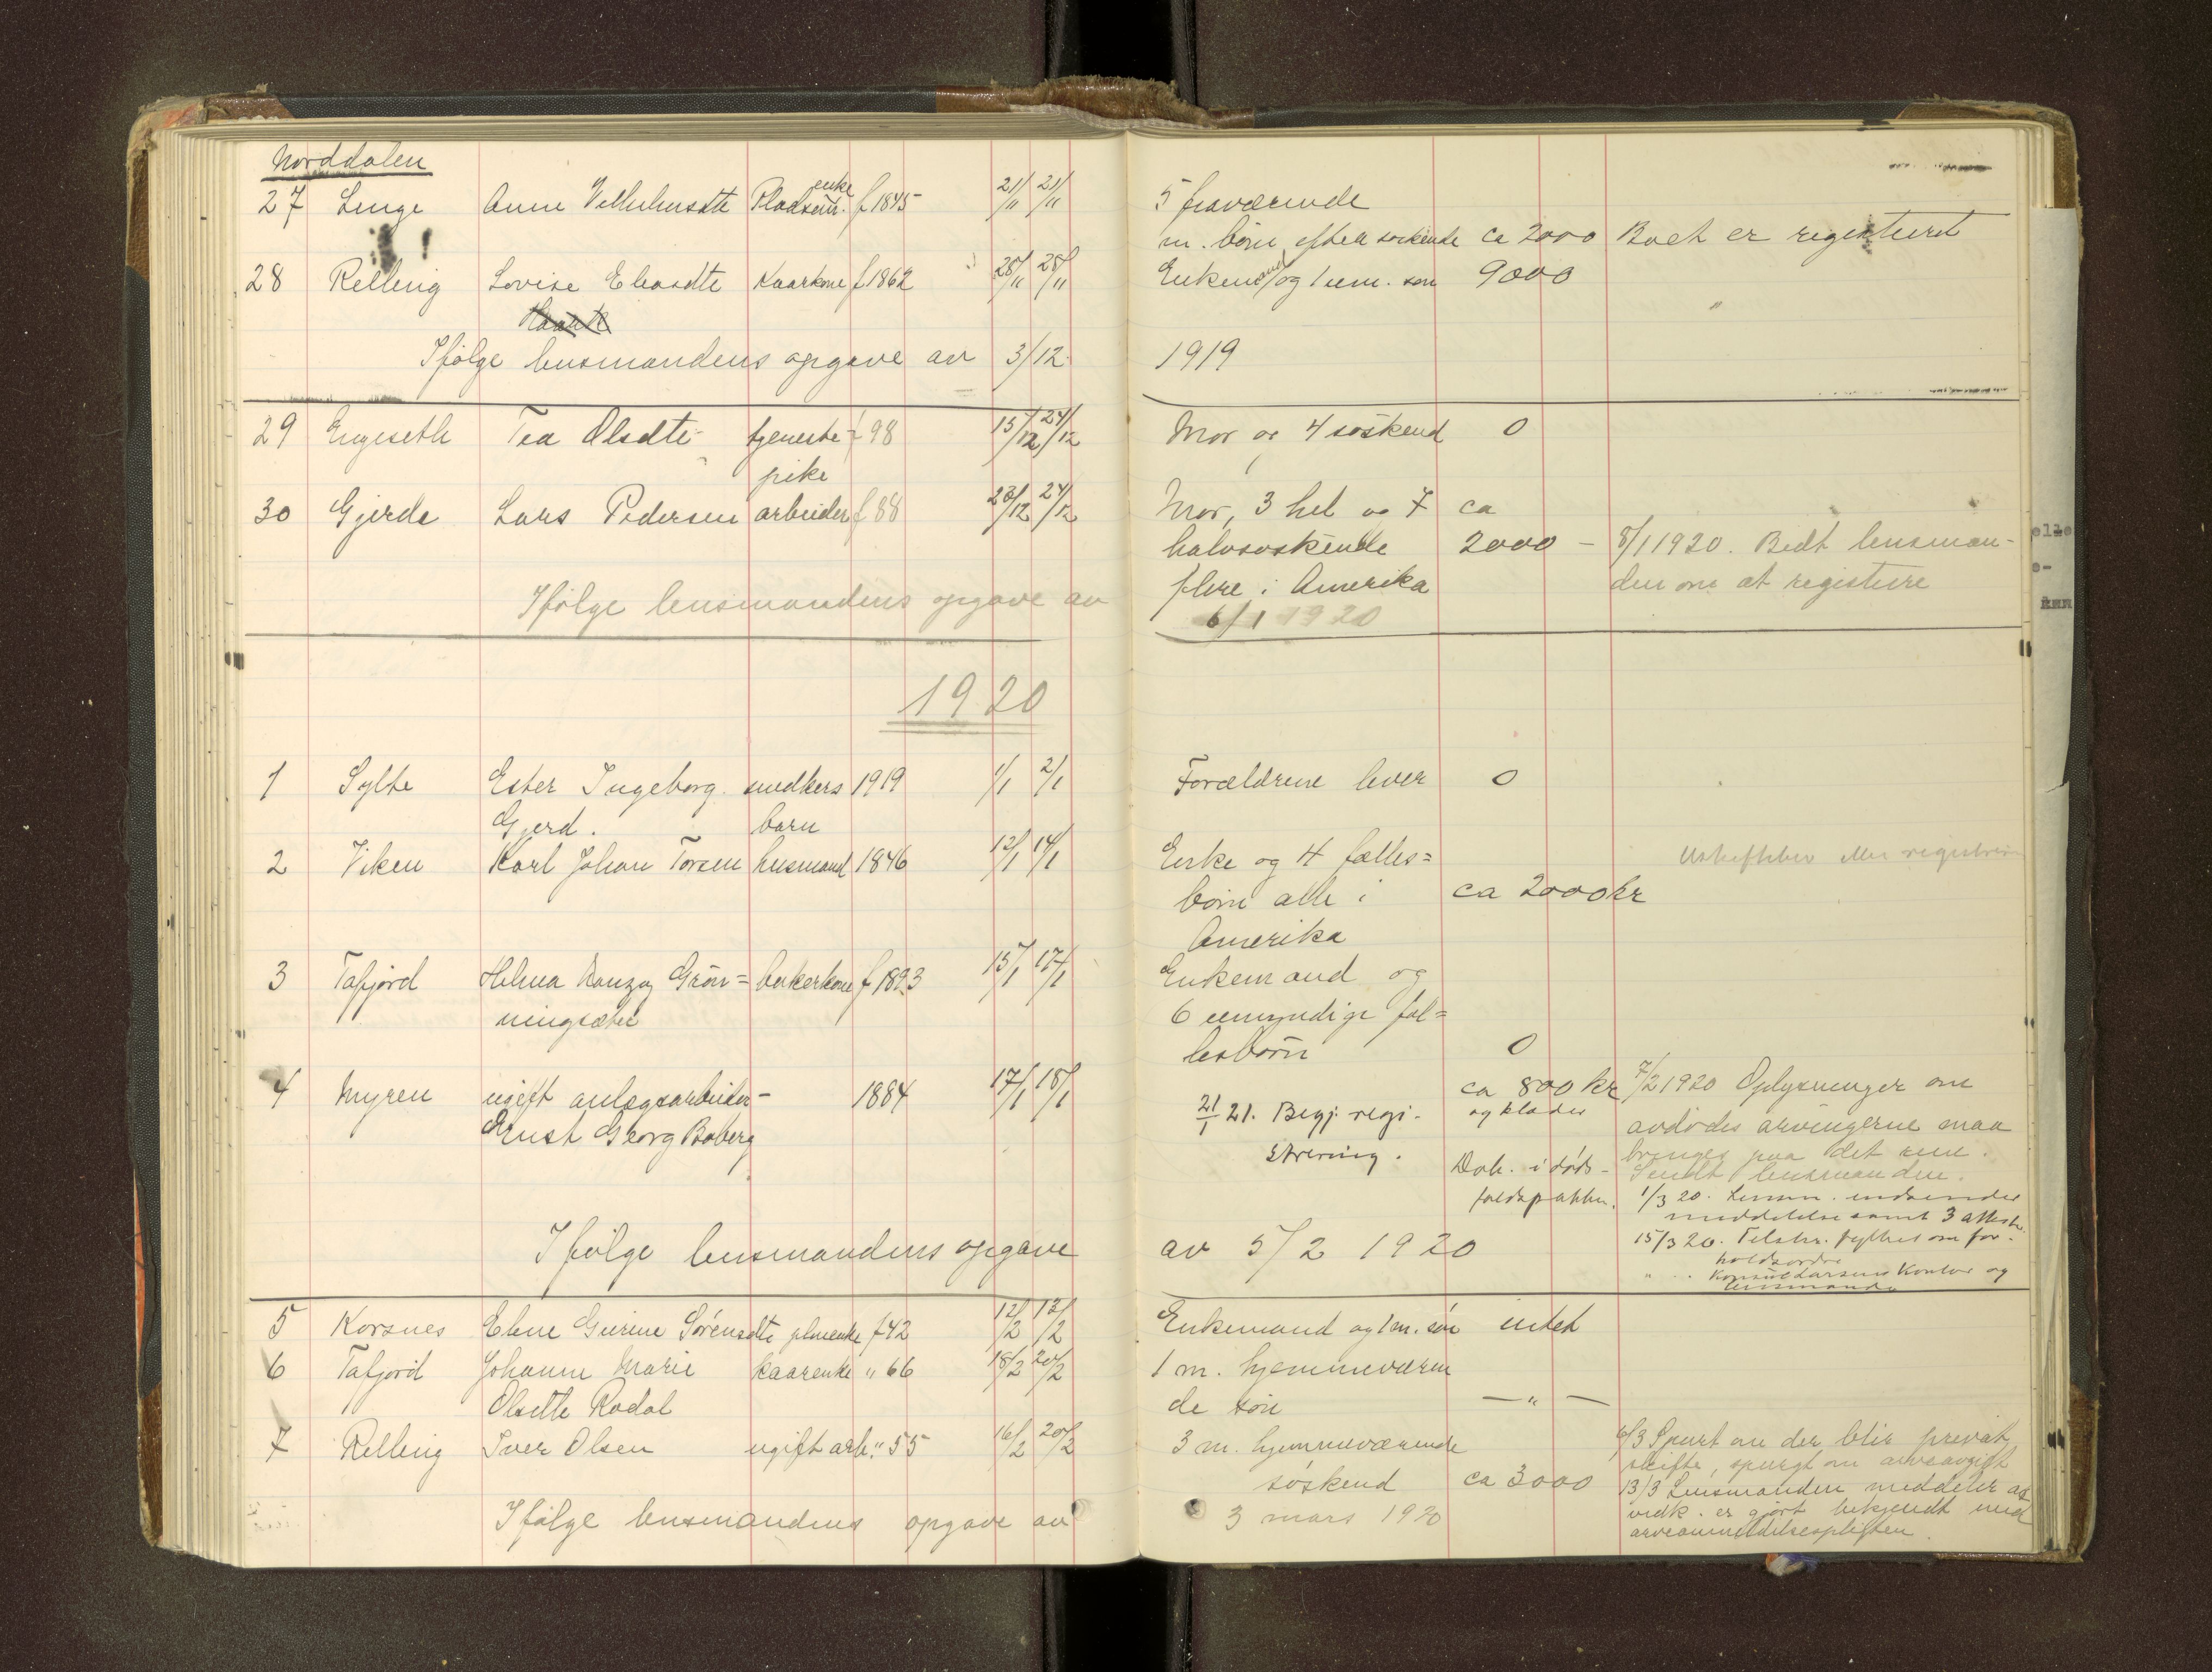 Norddalen
27 Linge Anne Vilhelmsdtr Pladsenke f 1845 21/11 21/11 5 fraværende
m. børn efter søskende ca 2000 Boet er registreret
28 Relling Lovise Eliasdtr Kaarkone f 1862 28/11 28/11 Enkemand og 1 um. søn 9000 "
Ifølge lensmandens opgave av 3/12 1919
29 Engeseth Tea Olsdtr tjeneste- f 98 15/12 24/12 Mor og 4 søskend 0
pike
30 Gjerde Lars Pedersen arbeider f 88 23/12 24/12 Mor, 3 hel og 7 ca
halvsøskende 2000 - 8/1 1920. Bedt lensman-
flere i Amerika den om at registrere
Ifølge lensmandens opgave av 6/1 1920
1920
1 Sylte Ester Ingeborg smedkers 1919 1/1 2/1 Forældrene lever 0
Gjerd. barn
2 Viken Karl Johan Torsen husmand 1846 12/1 14/1 Enke og 4 fælles=
børn alle i ca 2000 kr
Amerika
3 Tafjord Helma Grøn= bakerkone f 1893 15/1 17/1 Enkemand og
ningsæter 6 umyndige fæl=
lesbørn 0
4 Myren ugift anlægsarbeider- 1884 17/1 18/1 ca 800 kr 7/2 1920 Oplysninger om
og klæder
Ernst Georg Boberg 21/1 21. Begj. regi- avdødes arvingerne maa
strering. bringes paa det rene.
Dok. i døds- Sendt lensmanden.
faldspakken. 1/3 20. Lensm. indsender
meddelelse samt 3 attester
Ifølge lensmandens opgave av 5/2 1920 15/3 20. Telskr. fylket om for-
holdsordre
" " Konsul Larsens Kontor og
lensmanden
5 Korsnes Elene Gurine Sørensdtr f 42 12/2 13/2 Enkemand og 1 m. søn intet
6 Tafjord Johanne Marie kaarenke " 66 18/2 20/2 1 m. hjemmeværen
Olsdtr Rødal de søn — " —
7 Relling Iver Olsen ugift arb. " 55 16/2 20/2 3 m. hjemmeværende 6/3 Spurt om der blir privat
skifte, spurgt om arveavgift
søskend ca 3000 13/3 Lensmanden meddeler at
vedk. er gjort bekjendt med
Ifølge lensmandens opgave av 3 mars 1920 arveanmeldelsesplikten.
elle
e-